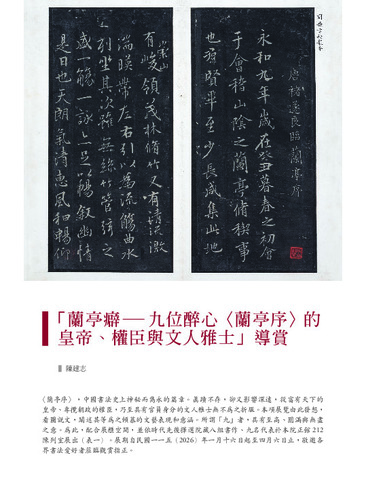 唐褚遂良臨蘭亭序
永和九年歲在癸丑暮春之初會
于會稽山陰之蘭亭脩稧事
也羣賢畢至少長咸集此地
崇山
有峻領茂林脩竹又有清流激
湍暎帶左右引以為流觴曲水
列坐其次雖無絲竹管弦之
盛一觴一詠亦足以暢敘幽情
是日也天朗氣清惠風和暢仰
「蘭亭癖——九位醉心〈蘭亭序〉的
皇帝、權臣與文人雅士」導賞
陳建志
〈蘭亭序〉,中國書法史上神祕而雋永的篇章。真蹟不存,卻又影響深遠,從富有天下的
皇帝、專攬朝政的權臣,乃至具有官員身分的文人雅士無不為之折服。本項展覽由此發想,
看圖說文,闡述其等為之傾慕的文藝表現和意涵。所謂「九」者,具有至高、圓滿與無盡
之意。為此,配合展櫃空間,並依時代先後擇選院藏八組書作、九名代表於本院正館212
陳列室展出(表一)。展期自民國一一五(2026)年一月十六日起至四月六日止,敬邀各
界書法愛好者蒞臨觀賞指正。